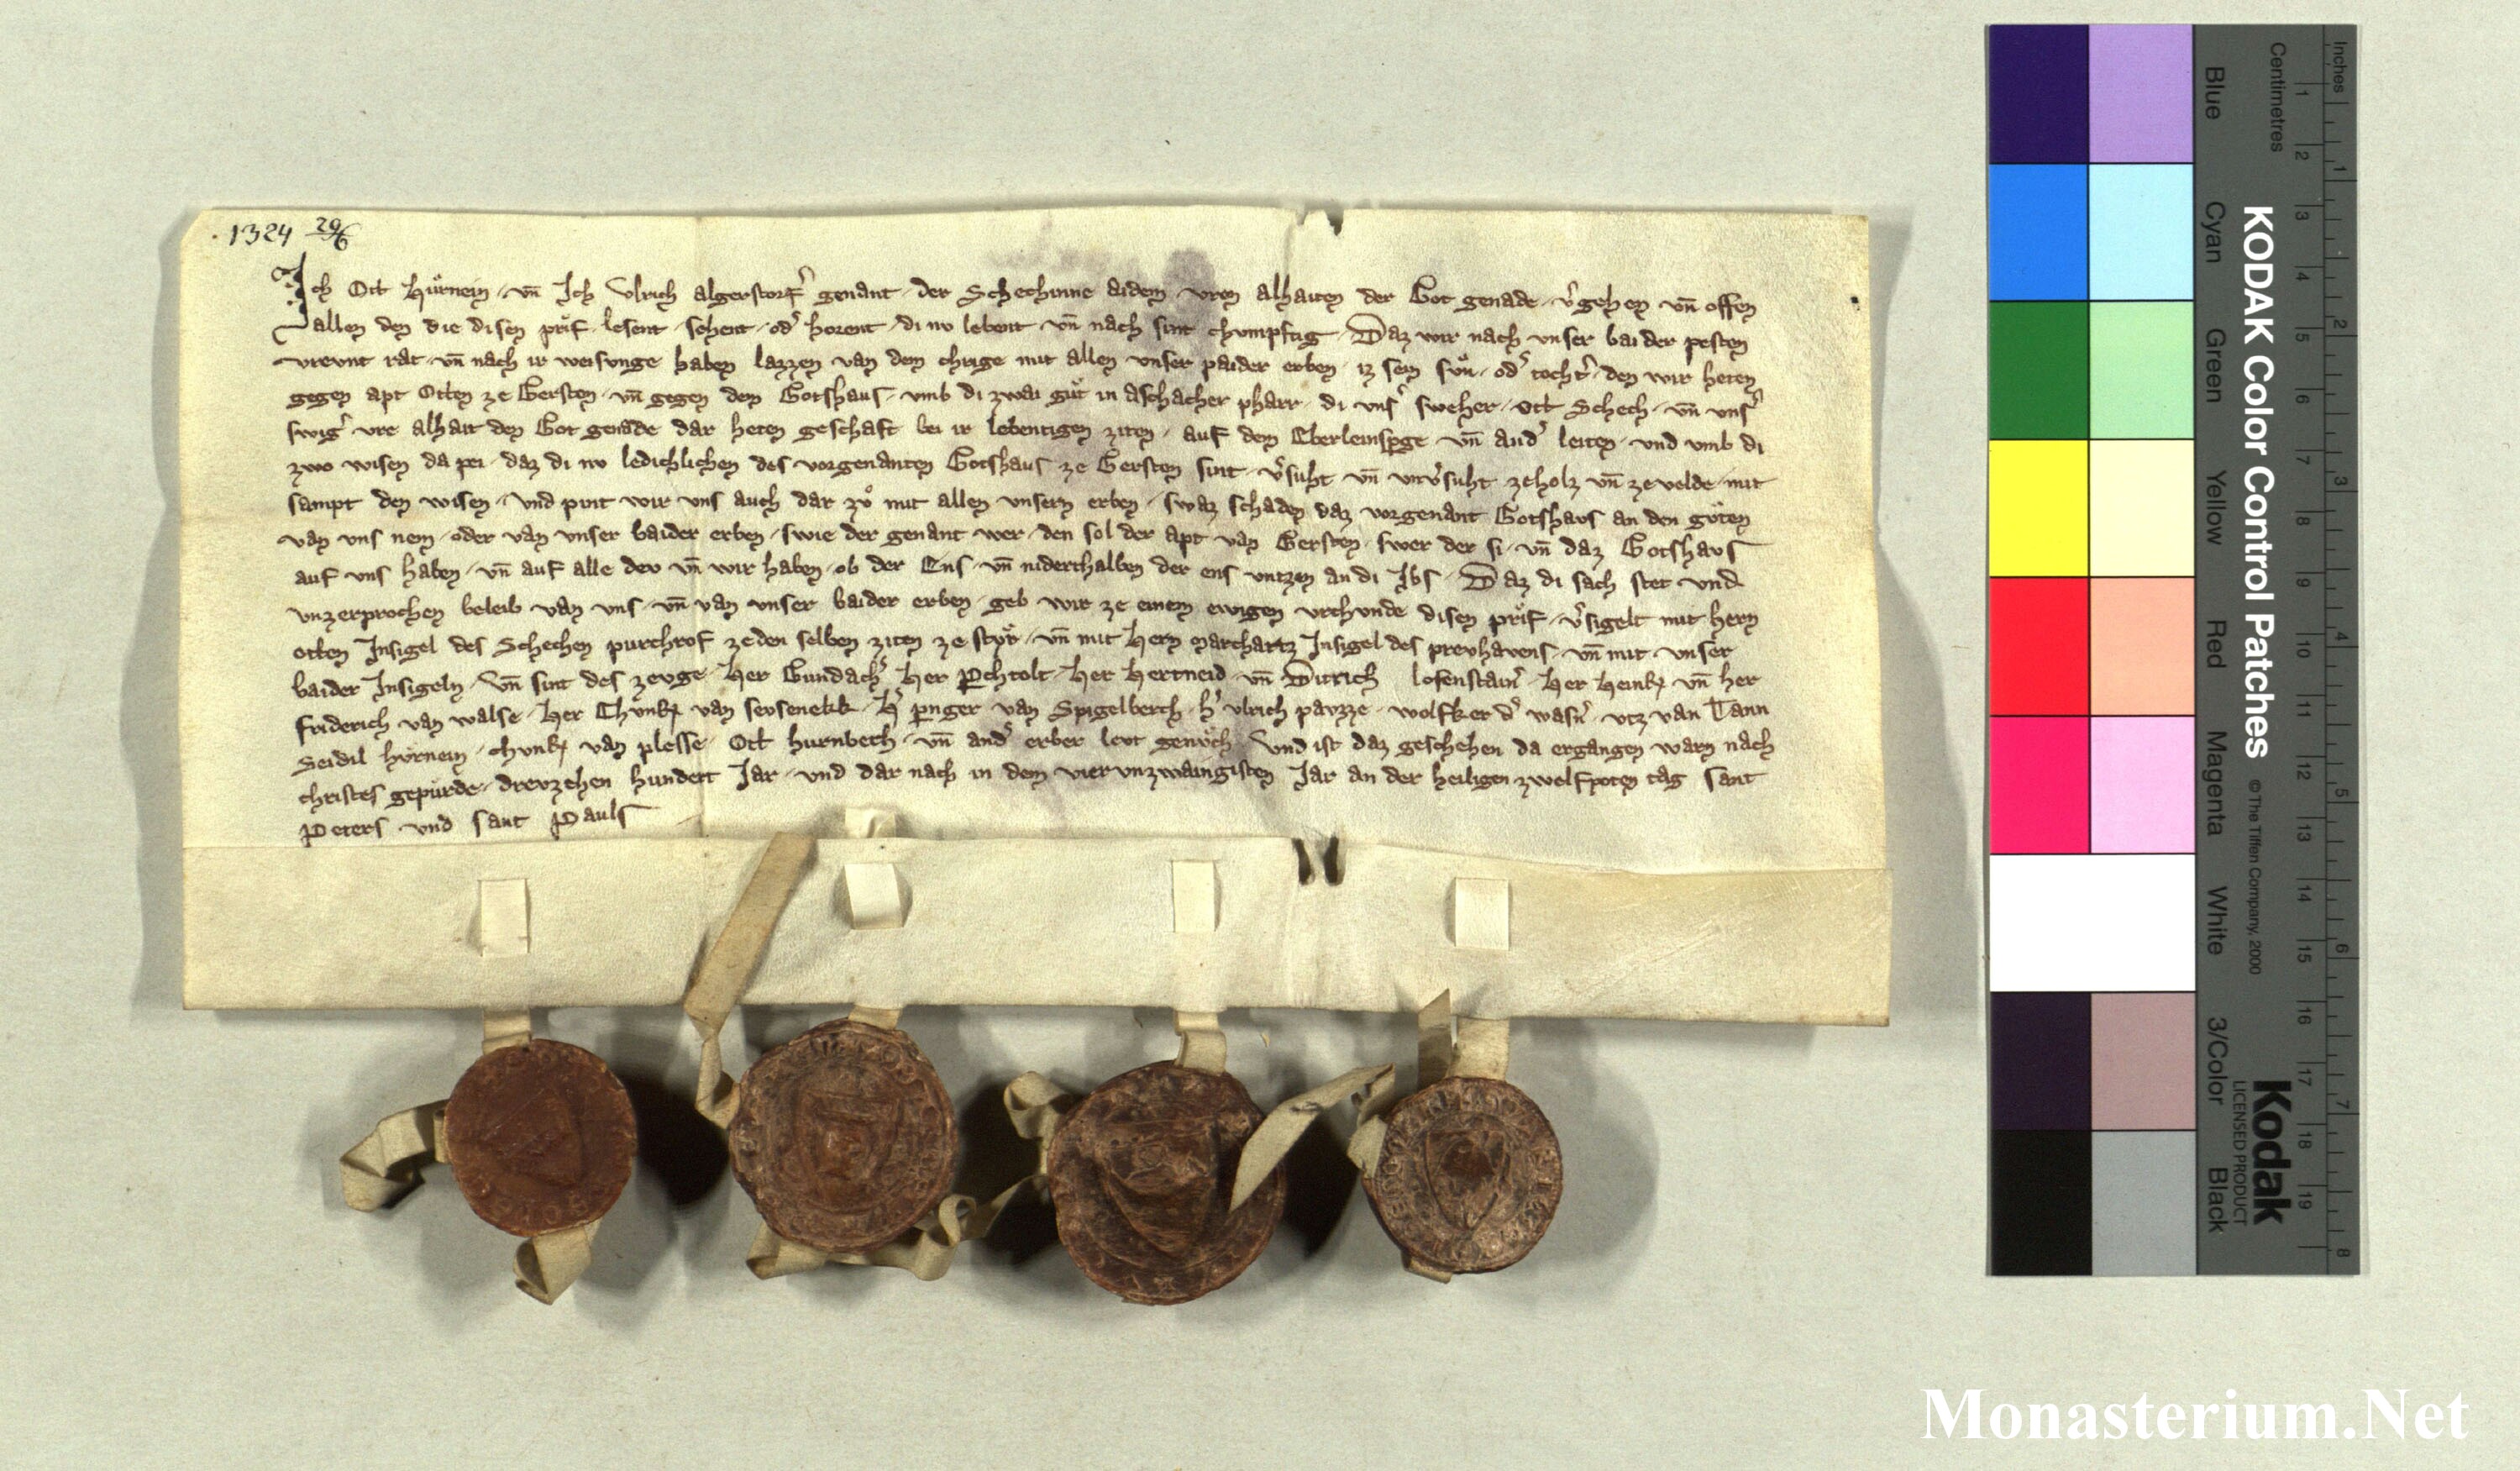 1324 29/6
Ich Ott hůrnein · vn̄ Ich Vlrich algerstorf̉ genant · der Schechinne aidem · vron alhaiten der Got genade · v̉gehen vn̄ offen
allen den die disen priͤf · lesent · sehent · od̉ horent · di nv lebent vn̄ nach sint chvmpftig · Daz wir nach vnser baider pesten
vrevnt rat · vn̄ nach ir weisvnge haben lazzen van dem chrige mit allen vnser paider erben · iz sein svͤn · od̉ tocht̉ · den wir heten
gegen apt Otten ze Gersten · vn̄ gegen dem Gotshaus · vmb di zwai guͤt in aschacher pharr · di vns̉ sweher · Ott Schech · vn̄ vns̉
swig̉ vre alhait den Got genade dar heten geschaft bei ir lebentigen ziten · auf dem Eberleinsperge vn̄ and̉ leiten · und vmb di
zwo wisen da pei · daz di nv ledichlichen des vorgenanten Gotshaus ze Gersten sint · v̉suht vn̄ vnv̉suht zeholz vn̄ zevelde · mit
sampt den wisen · Vnd pint wir vns auch dar zvͦ mit allen vnsern erben · swaz schaden daz vorgenant Gotshavs an den gůten
van vns nem · oder van vnser baider erben · swie der genant wer · den sol der apt van Gersten · swer der si · vn̄ daz Gotshavs
auf vns haben · vn̄ auf alle dev vn̄ wir haben · ob der Ens · vn̄ niderthalben der ens vntzen an di Ibs · Daz di sach stet vnd
vnzerprochen beleib van vns · vn̄ van vnser baider erben · geb wir ze einem ewigen vrchvnde disen priͤf · v̉sigelt mit hern
otten Insigel des Schechen purchrof zeden selben ziten ze styͤr · vn̄ mit hern marchartz Insigel des prevhavens · vn̄ mit vnser
baider Insigeln · Vn̄ sint des zevge · her Gundach̉ her Pchtolt · her hertneid · vn̄ Ditrich lofenstain̉ · her heinrͥ vn̄ her
friderich van walse · her Chvnrͥ van sevsenekk · h̉ pnger van Spigelberch · h̉ vlrich pavzze · wolfker d̉ wasn̉ · vtz van Tann
Seidil hv̊rnein · chvnrͥ van plesse · Ott hurnbech · vn̄ and̉ erber levt genůch · Vnd ist daz geschehen da ergangen warn nach
christes gepůrde · drevzehen hundert Iar · vnd dar nach in dem vier vnzwaingisten Iar an der heiligen zwelfpoten tag sant
Peters vnd sant Pauls
Inches
Centimetres
Blue Cyan Green Yellow Red Magenta White 3/Color Black
KODAK Color Control Patches
© The Tiffen Company, 2000
Kodak
LICENSED PRODUCT
1 2 3 4 5 6 7 8 9 10 11 12 13 14 15 16 17 18 19
1 2 3 4 5 6 7 8
Monasterium.Net